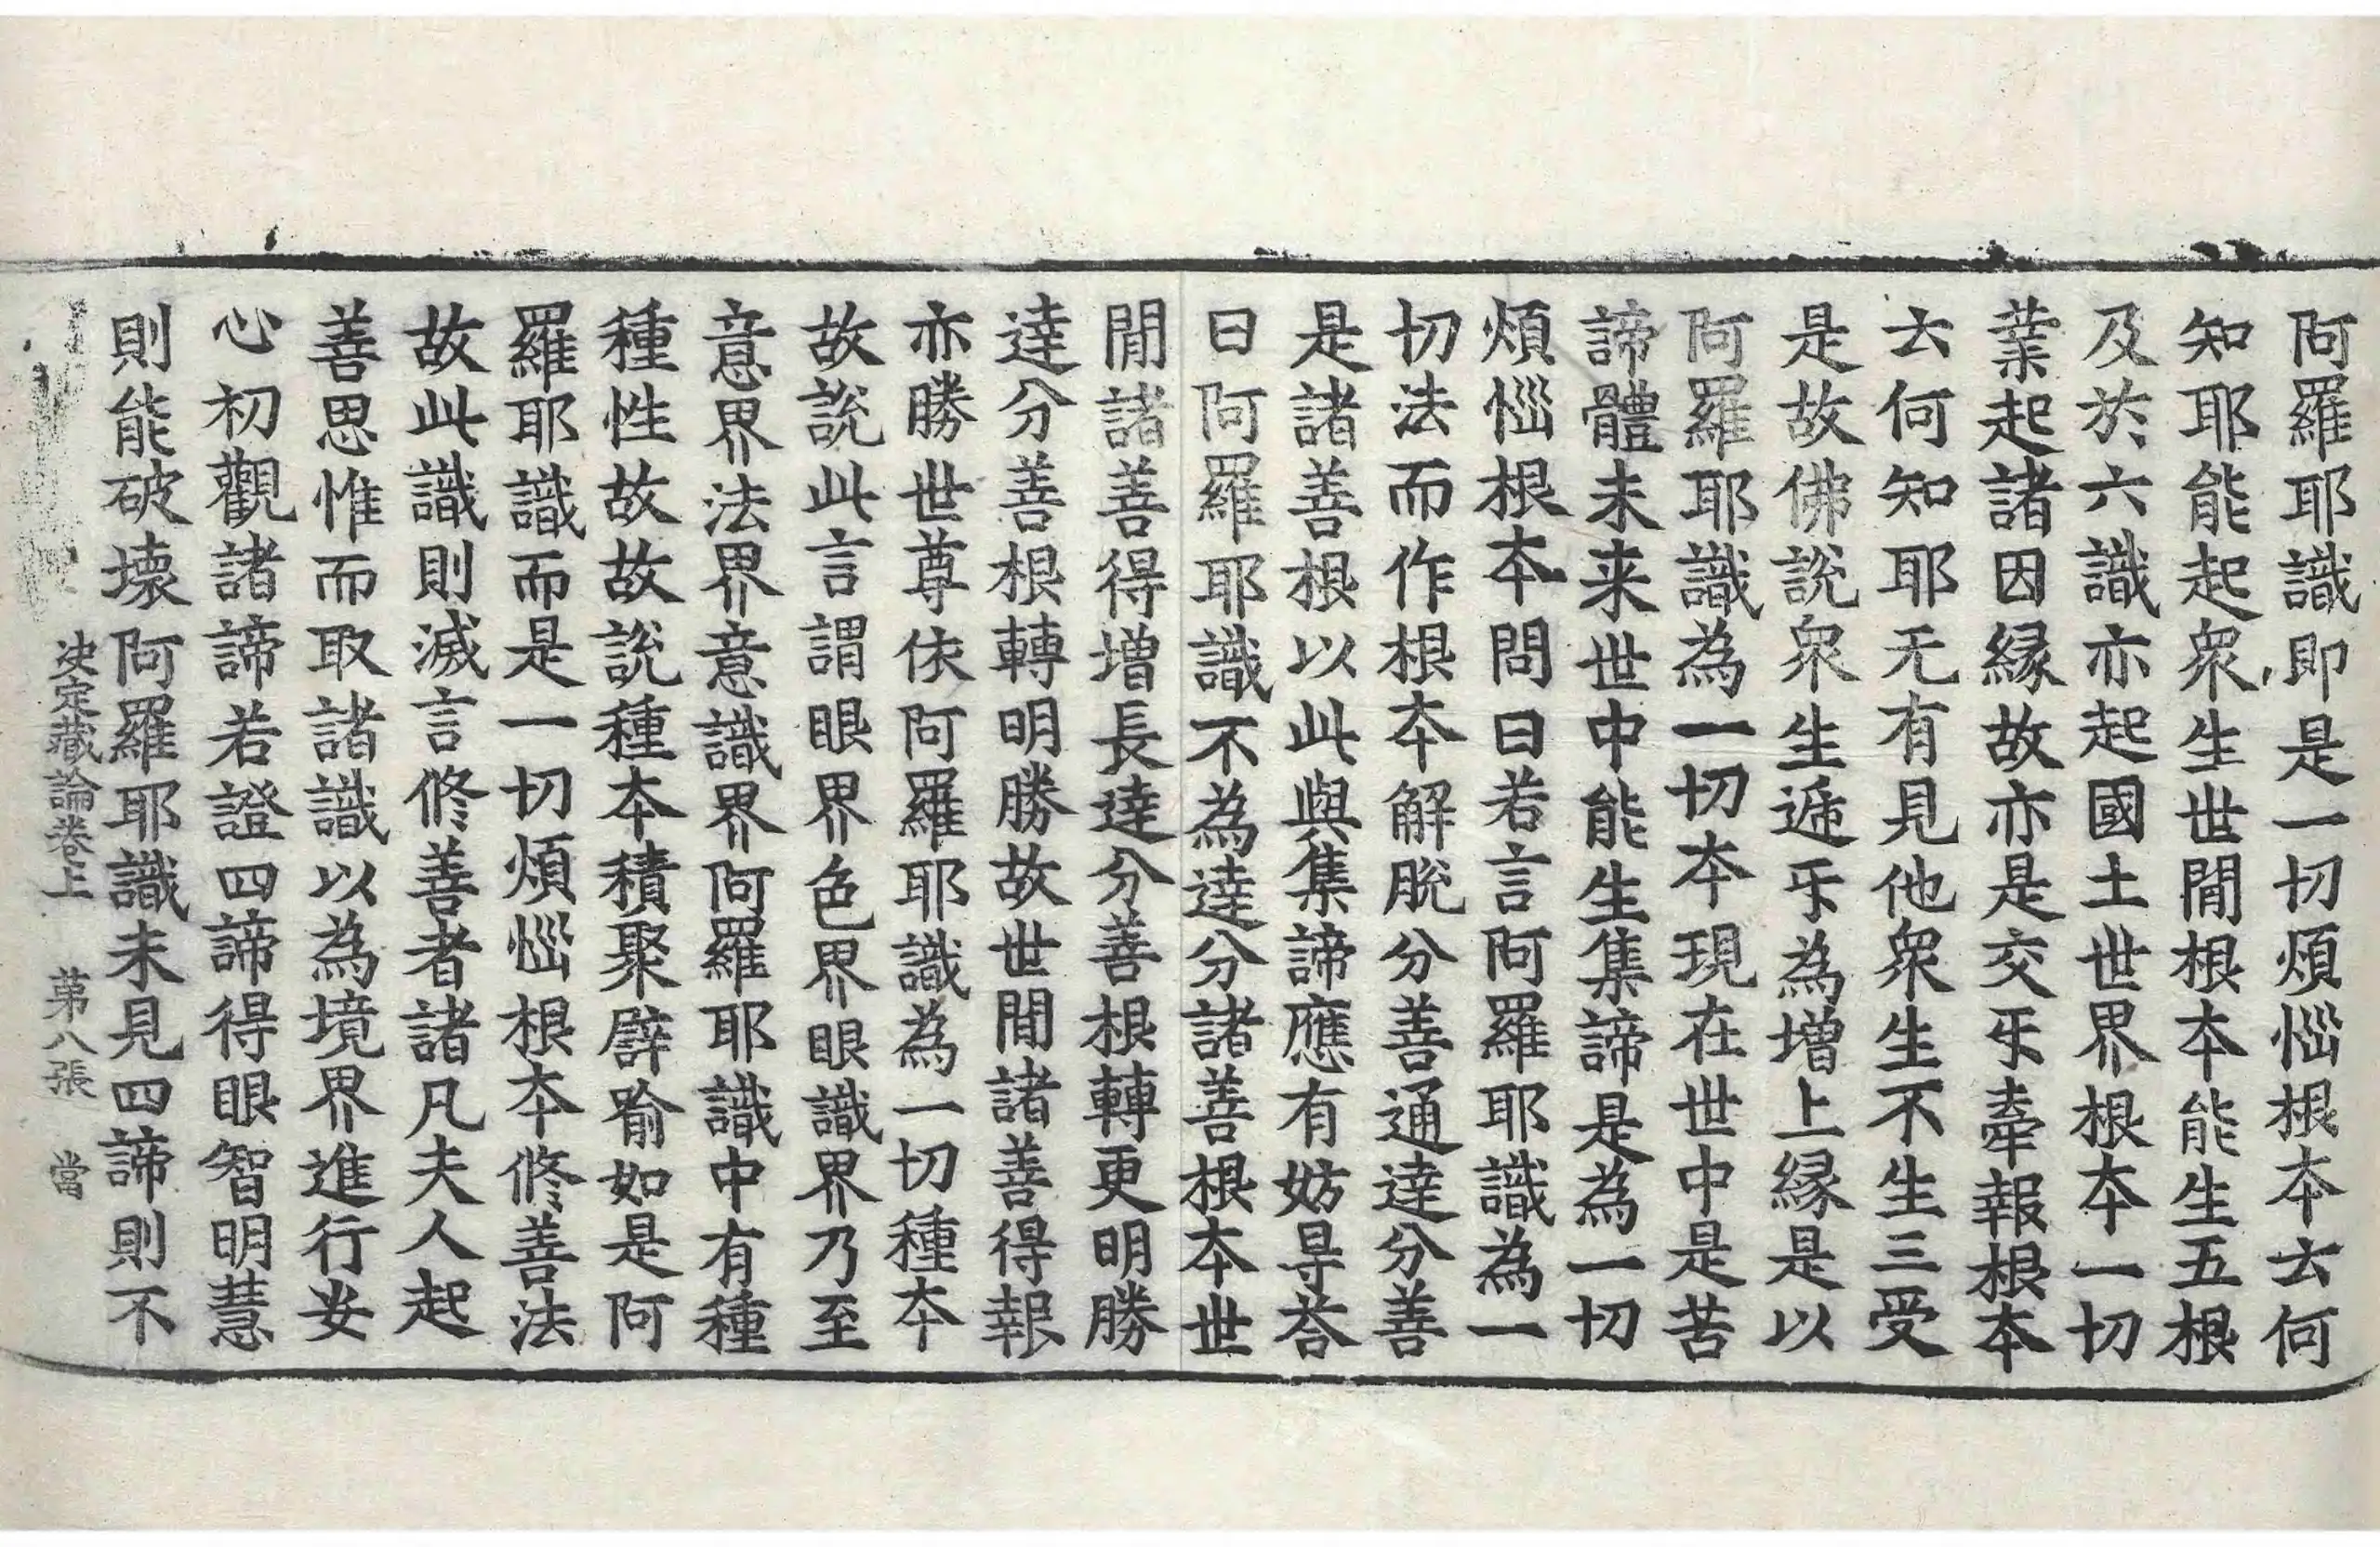 阿羅耶識即是一切煩惱根本云何
知耶能起衆生世間根本能生五根
及於六識亦起國土世界根本一切
業起諸因縁故亦是交㸦牽報根本
云何知耶无有見他衆生不生三受
是故佛說衆生遞㸦為增上縁是以
阿羅耶識為一切本現在世中是苦
諦體未来世中能生集諦是為一切
煩惱根本問曰若言阿羅耶識為一
切法而作根本解脫分善通達分善
是諸善根以此與集諦應有妨㝵荅
曰阿羅耶識不為達分諸善根本世
間諸善得增長達分善根轉更明勝
達分善根轉明勝故世間諸善得報
亦勝世尊依阿羅耶識為一切種本
故說此言謂眼界色界眼識界乃至
意界法界意識界阿羅耶識中有種
種性故故說種本積聚譬喻如是阿
羅耶識而是一切煩惱根本修善法
故此識則滅言修善者諸凡夫人起
善思惟而取諸識以為境界進行安
心初觀諸諦若證四諦得眼智明慧
則能破壞阿羅耶識未見四諦則不
决定藏論卷上 第八張 當